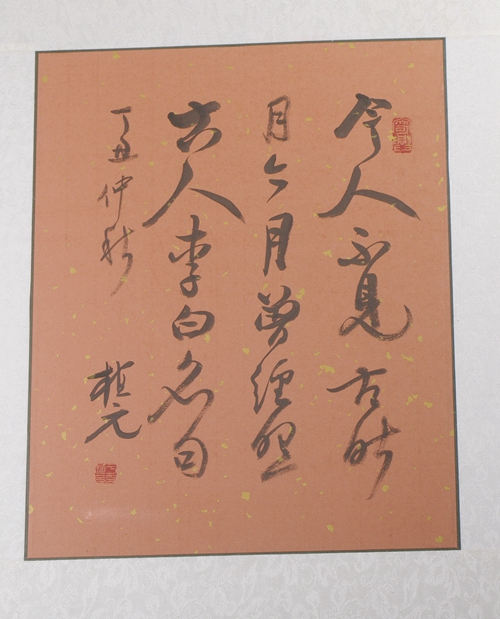 今人不見古时
月今月曾经照
古人李白名句
丁丑仲秋
哲元